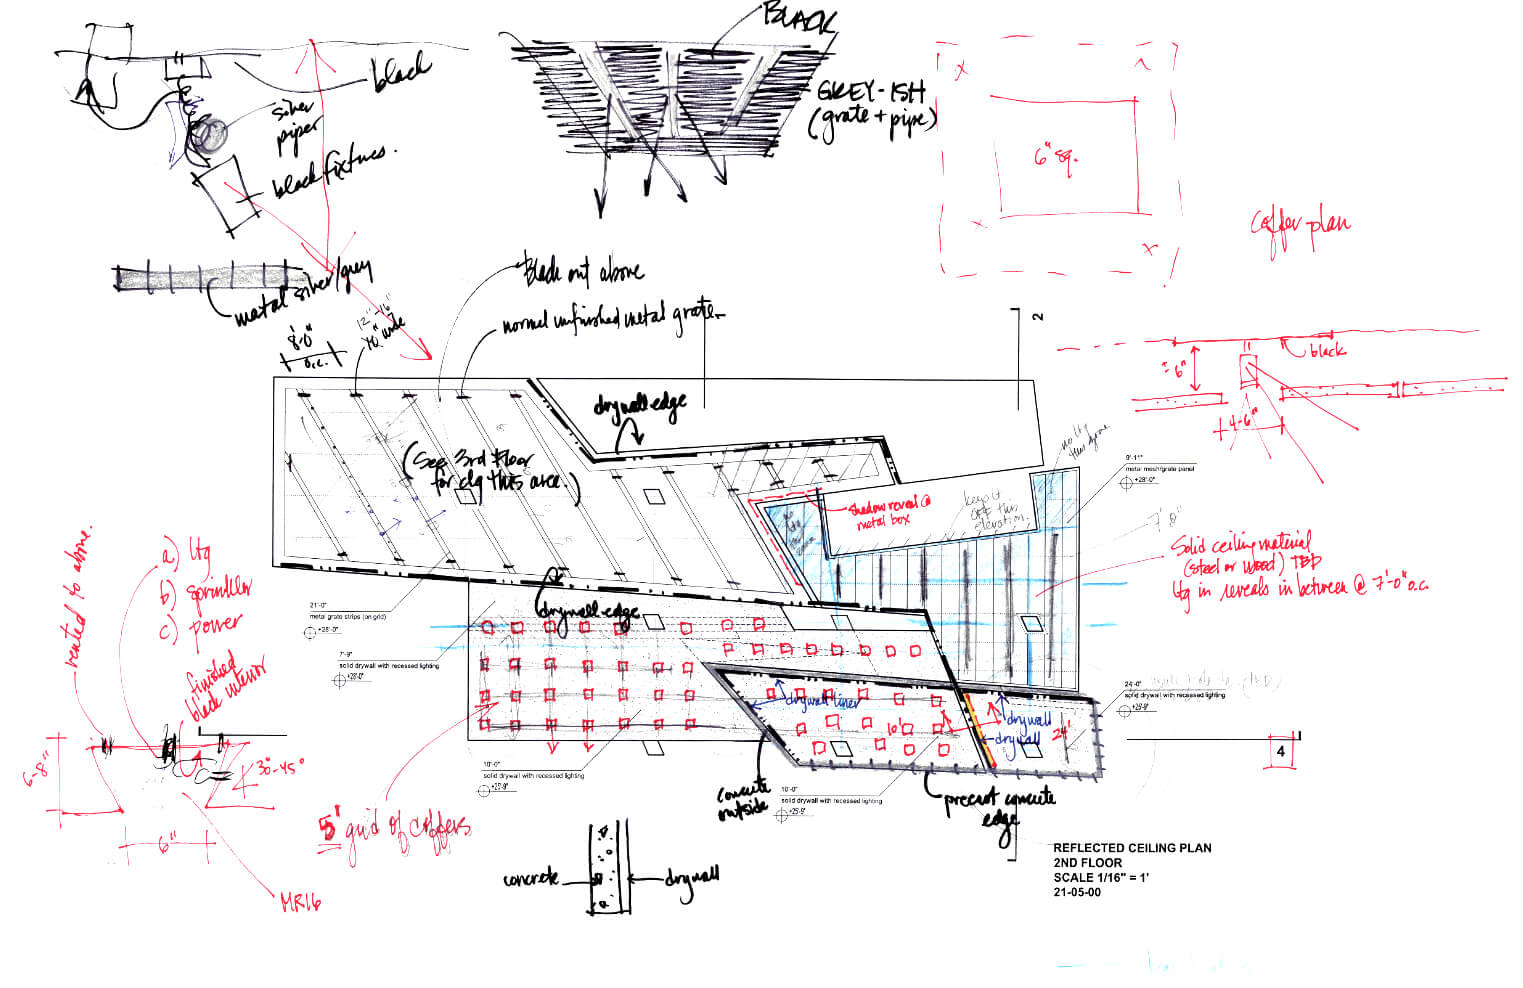 BLACK
black
silver
piper
black fixtures.
GREY-ISH
(grate + pipe)
6" sq.
coffer plan
metal silver/grey
Black out above
normal unfinished metal grate
12"-16"
10" wide
8'-0"
o.c.
2
black
6"
4'-6"
drywall edge
(See 3rd Floor
for clg this area.)
no ltg
9'-11"
metal mesh/grate panel
+28'-0"
shadow reveal @
metal box
keep it
OFF this
elevation
7'0"
Solid ceiling material
(steel or wood) TBD
ltg in reveals in between @ 7'-0" o.c.
vented to above.
a) ltg
b) sprinkler
c) power
finished
black interior
drywall edge
21'-0"
metal grate strips (on grid)
+28'-0"
7'-9"
solid drywall with recessed lighting
+26'-0"
24'-0"
solid drywall with recessed lighting
drywall liner
drywall
drywall
10'
24'
6-8"
30°-45°
6"
MR16
5' grid of coffers
10'-0"
solid drywall with recessed lighting
+25'-9"
concrete
outside
10'-0"
solid drywall with recessed lighting
+25'-9"
precast concrete
edge
4
concrete
drywall
REFLECTED CEILING PLAN
2ND FLOOR
SCALE 1/16" = 1'
21-05-00